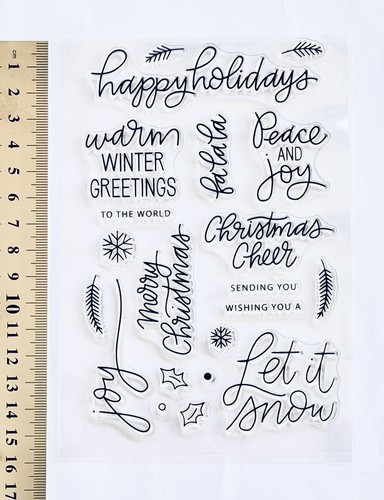 happy holidays
warm
WINTER
GREETINGS
falalala
Peace
AND
joy
TO THE WORLD
Christmas
Cheer
Merry
Christmas
SENDING YOU
WISHING YOU A
joy
Let it
snow
cm
1
2
3
4
5
6
7
8
9
10
11
12
13
14
15
16
17